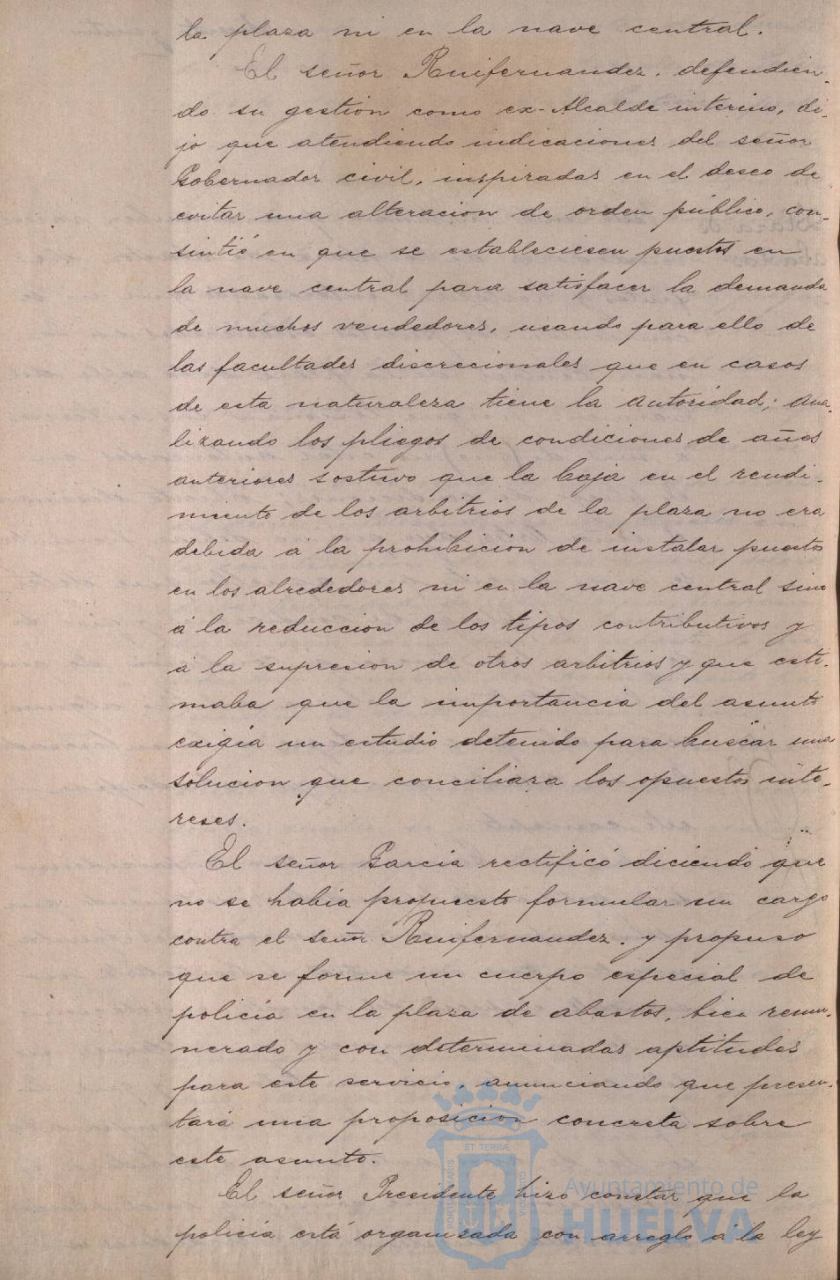 la plaza ni en la nave central.
El señor Ruifernandez, defendien-
do su gestión como ex-Alcalde interino, di-
jo que atendiendo indicaciones del señor
Gobernador civil, inspiradas en el deseo de
evitar una alteracion de orden público, con-
sintió en que se estableciesen puestos en
la nave central para satisfacer la demanda
de muchos vendedores, usando para ello de
las facultades discrecionales que en casos
de esta naturaleza tiene la autoridad; ana-
lizando los pliegos de condiciones de años
anteriores sostuvo que la baja en el rendi-
miento de los arbitrios de la plaza no era
debida á la prohibicion de instalar puestos
en los alrededores ni en la nave central sino
á la reduccion de los tipos contributivos y
á la supresion de otros arbitrios y que esti-
maba que la importancia del asunto
exigia un estudio detenido para buscar una
solucion que conciliara los opuestos inte-
reses.
El señor Garcia rectificó diciendo que
no se habia propuesto formular un cargo
contra el señor Ruifernandez, y propuso
que se forme un cuerpo especial de
policía en la plaza de abastos, bien remu-
nerado y con determinadas aptitudes
para este servicio, anunciando que presen-
tará una proposicion concreta sobre
este asunto.
El señor Presidente hizo constar que la
policía está organizada con arreglo á la ley
Ayuntamiento de
HUELVA